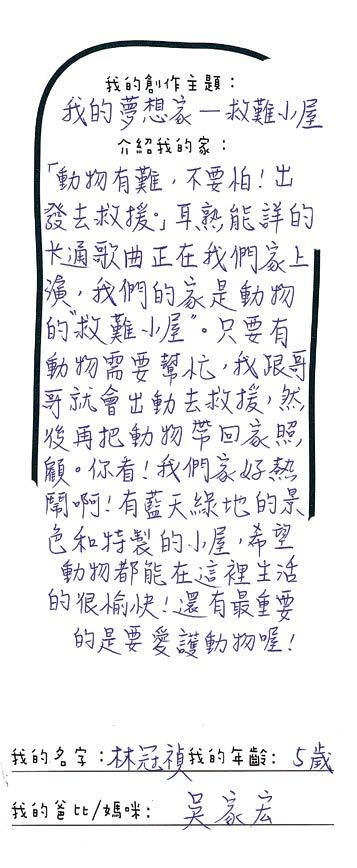 我的創作主題：
我的夢想家－救難小屋
介紹我的家：
「動物有難，不要怕！出
發去救援。」耳熟能詳的
卡通歌曲正在我們家上
演，我們的家是動物
的“救難小屋”。只要有
動物需要幫忙，我跟哥
哥就會出動去救援，然
後再把動物帶回家照
顧。你看！我們家好熱
鬧啊！有藍天綠地的景
色和特製的小屋，希望
動物都能在這裡生活
的很愉快！還有最重要
的是要愛護動物喔！
我的名字：林冠禎我的年齡：5歲
我的爸比/媽咪：吳家宏